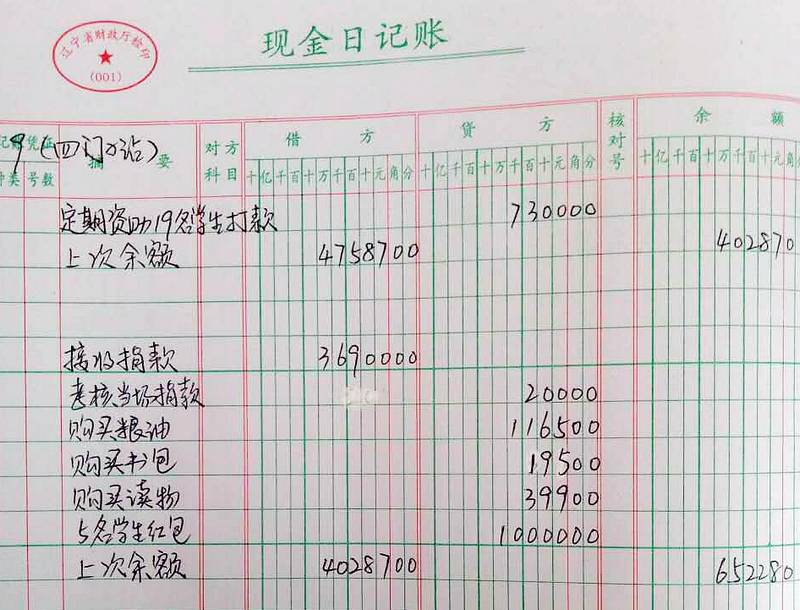 现金日记账
辽宁省财政厅检印
(001)
记账凭证 摘要 对方科目 借方 贷方 核对号 余额
种类 号数 十亿千百十万千百十元角分 十亿千百十万千百十元角分 十亿千百十万千百十
9 (四门小站)
定期资助19名学生打款 730000
上次余额 4758700 402870
接收捐款 3690000
考核当场捐款 20000
购买粮油 116500
购买书包 19500
购买读物 39900
5名学生红包 1000000
上次余额 4028700 652280